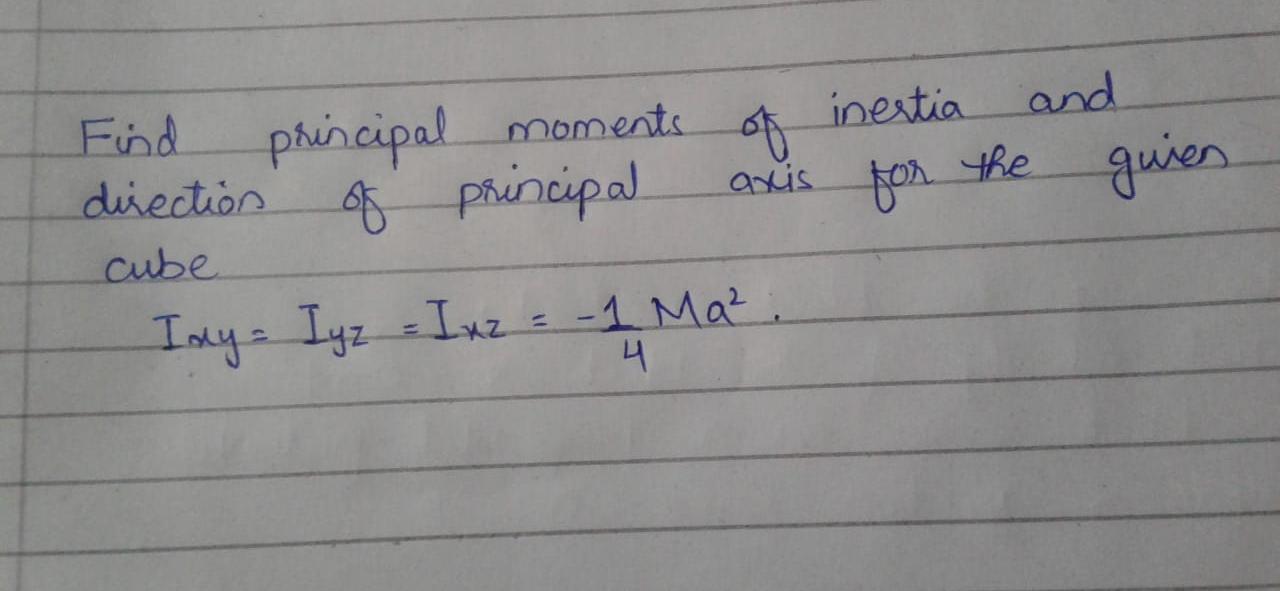 Find principal moments of inertia and
direction of principal axis for the given
cube
Ixy = Iyz = Ixz = -1/4 Ma².